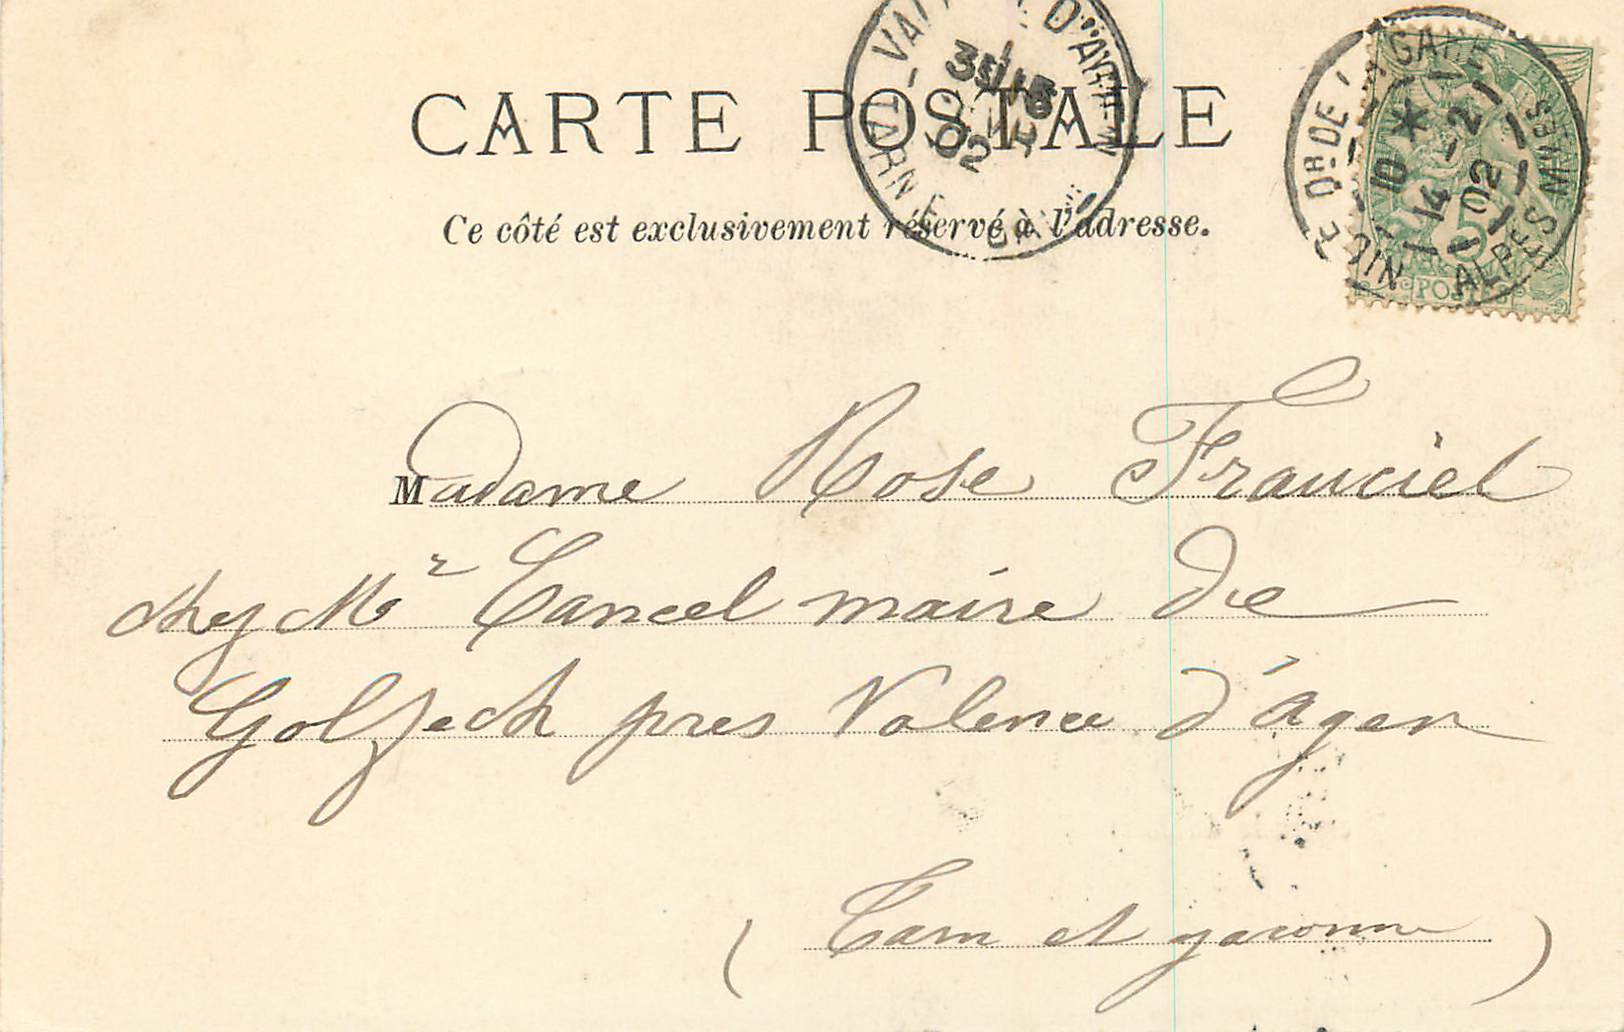 CARTE POSTALE
Ce côté est exclusivement réservé à l'adresse.
D'AGEN
3E 15
02
TARN
NICE Qr DE LA GARE
10 *
14 -2
02
ALPES MMES
5
POSTES
Madame Rose Franciel
chez Mr Cancel maire de
Golfech pres Valence d'Agen
(Tarn et garonne)